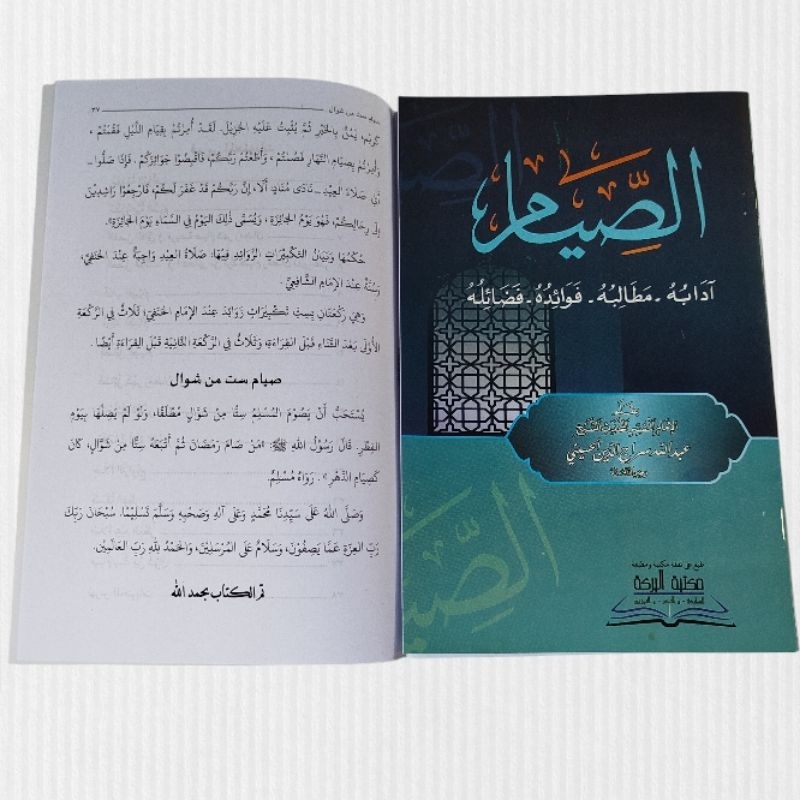 صيام ست من شوال ٣٧
كَرِيمٍ، يَمُنُّ بِالخَيْرِ ثُمَّ يُثِيبُ عَلَيْهِ الجَزِيلَ. لَقَدْ أُمِرْتُمْ بِقِيَامِ اللَّيْلِ فَقُمْتُمْ،
وَأُمِرْتُمْ بِصِيَامِ النَّهَارِ فَصُمْتُمْ، وَأَطَعْتُمْ رَبَّكُمْ، فَاقْبِضُوا جَوَائِزَكُمْ. فَإِذَا صَلُّوا ــ
أَيْ صَلَاةَ العِيدِ ــ نَادَى مُنَادٍ: أَلَا، إِنَّ رَبَّكُمْ قَدْ غَفَرَ لَكُمْ، فَارْجِعُوا رَاشِدِينَ
إِلَى رِحَالِكُمْ، فَهُوَ يَوْمُ الجَائِزَةِ، وَيُسَمَّى ذَلِكَ اليَوْمُ فِي السَّمَاءِ يَوْمَ الجَائِزَةِ».
حُكْمُهَا وَبَيَانُ التَّكْبِيرَاتِ الزَّوَائِدِ فِيهَا: صَلَاةُ العِيدِ وَاجِبَةٌ عِنْدَ الحَنَفِيِّ،
وَسُنَّةٌ عِنْدَ الإِمَامِ الشَّافِعِيِّ.
وَهِيَ رَكْعَتَانِ بِسِتِّ تَكْبِيرَاتٍ زَوَائِدَ عِنْدَ الإِمَامِ الحَنَفِيِّ: ثَلَاثٌ فِي الرَّكْعَةِ
الأُولَى بَعْدَ الثَّنَاءِ قَبْلَ القِرَاءَةِ، وَثَلَاثٌ فِي الرَّكْعَةِ الثَّانِيَةِ قَبْلَ القِرَاءَةِ أَيْضًا.
صيام ست من شوال
يُسْتَحَبُّ أَنْ يَصُومَ المُسْلِمُ سِتًّا مِنْ شَوَّالٍ مُطْلَقًا، وَلَوْ لَمْ يَصِلْهَا بِيَوْمِ
الفِطْرِ. قَالَ رَسُولُ اللهِ ﷺ: «مَنْ صَامَ رَمَضَانَ ثُمَّ أَتْبَعَهُ سِتًّا مِنْ شَوَّالٍ، كَانَ
كَصِيَامِ الدَّهْرِ». رَوَاهُ مُسْلِمٌ.
وَصَلَّى اللهُ عَلَى سَيِّدِنَا مُحَمَّدٍ وَعَلَى آلِهِ وَصَحْبِهِ وَسَلَّمَ تَسْلِيمًا. سُبْحَانَ رَبِّكَ
رَبِّ العِزَّةِ عَمَّا يَصِفُونَ، وَسَلَامٌ عَلَى المُرْسَلِينَ، وَالحَمْدُ للهِ رَبِّ العَالَمِينَ.
تم الكتاب بحمد الله
الصِّيَام
آدَابُهُ - مَطَالِبُهُ - فَوَائِدُهُ - فَضَائِلُهُ
عبد الله سراج الدين الحسيني
طبع على نفقة مكتبة ومطبعة
مكتبة البركة
الصِّيَام